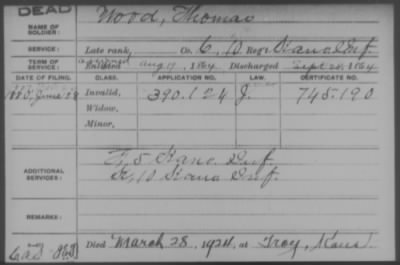 DEAD
NAME OF SOLDIER: Wood, Thomas
SERVICE: Late rank, Co. C, 10 Reg't Kans. Inf.
TERM OF SERVICE: Enlisted Aug 9, 1864 Discharged Sept 20, 1864
DATE OF FILING. CLASS. APPLICATION NO. LAW. CERTIFICATE NO.
1880, June 28 Invalid, 390.124 J. 745.190
Widow,
Minor,
ADDITIONAL SERVICES: F, 5 Kans. Inf.
10 Kans Inf.
REMARKS:
Died March 28, 1924, at Troy, Kans.